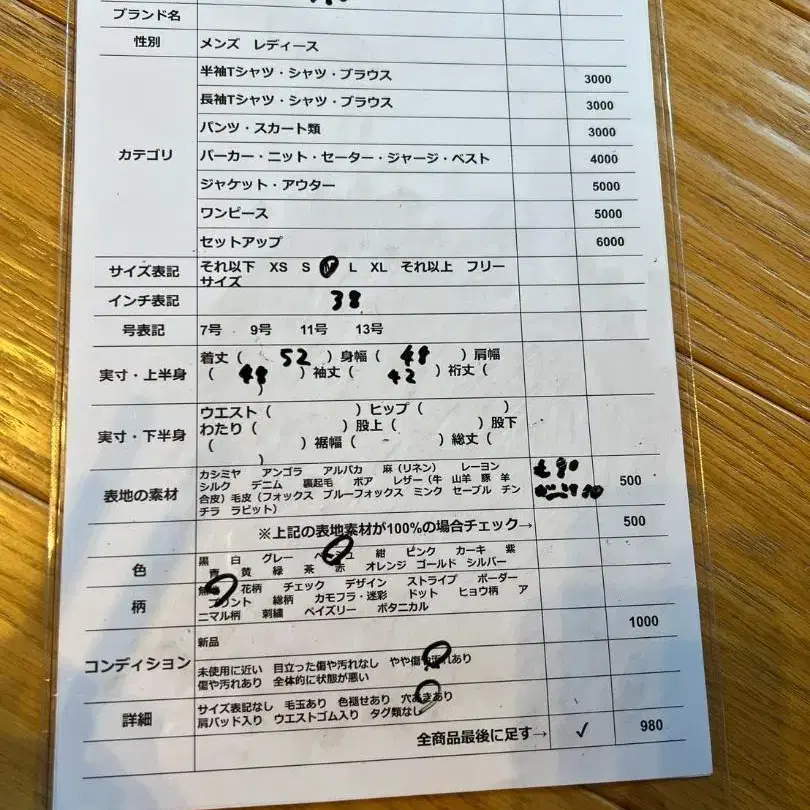 ブランド名
性別 メンズ レディース
カテゴリ
半袖Tシャツ・シャツ・ブラウス 3000
長袖Tシャツ・シャツ・ブラウス 3000
パンツ・スカート類 3000
パーカー・ニット・セーター・ジャージ・ベスト 4000
ジャケット・アウター 5000
ワンピース 5000
セットアップ 6000
サイズ表記 それ以下 XS S M L XL それ以上 フリー
サイズ
インチ表記 38
号表記 7号 9号 11号 13号
実寸・上半身
着丈( 52 )身幅( 48 )肩幅
( 48 )袖丈( 42 )裄丈(
)
実寸・下半身
ウエスト( )ヒップ( )
わたり( )股上( )股下
( )裾幅( )総丈(
)
表地の素材
カシミヤ アンゴラ アルパカ 麻(リネン) レーヨン
シルク デニム 裏起毛 ボア レザー(牛 山羊 豚 羊
合皮)毛皮(フォックス ブルーフォックス ミンク セーブル チン
チラ ラビット)
500
※上記の表地素材が100%の場合チェック→ 500
色
黒 白 グレー ベージュ 紺 ピンク カーキ 紫
青 黄 緑 茶 赤 オレンジ ゴールド シルバー
柄
花柄 チェック デザイン ストライプ ボーダー
プリント 総柄 カモフラ・迷彩 ドット ヒョウ柄 ア
ニマル柄 刺繍 ペイズリー ボタニカル
コンディション
新品 1000
未使用に近い 目立った傷や汚れなし やや傷や汚れあり
傷や汚れあり 全体的に状態が悪い
詳細
サイズ表記なし 毛玉あり 色褪せあり 穴あきあり
肩パッド入り ウエストゴム入り タグ類なし
全商品最後に足す→ ✓ 980